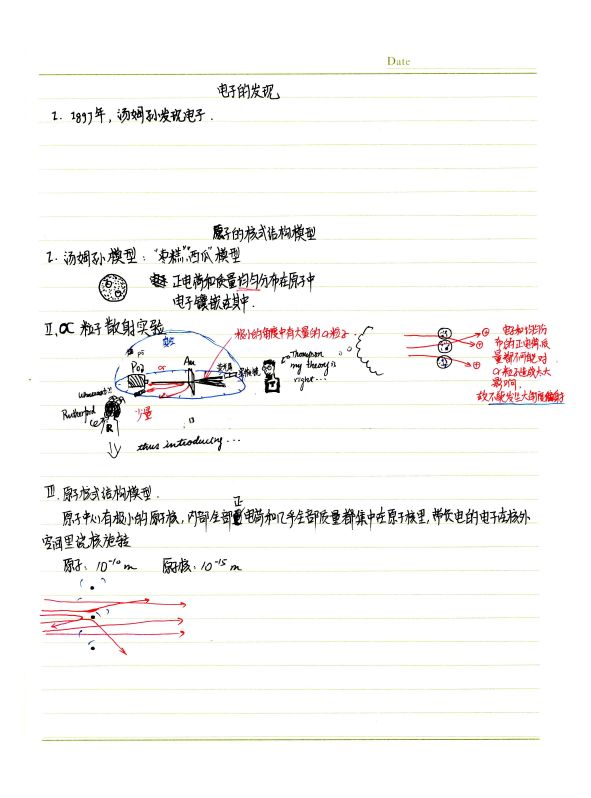 Date
电子的发现
I. 1897年，汤姆孙发现电子.
原子的核式结构模型
I. 汤姆孙模型："枣糕""西瓜"模型
正电荷和质量均匀分布在原子中
电子镶嵌在其中.
II. α 粒子散射实验
真空
极小的角度中有大量的α粒子.
Po
α
Au
荧光屏
显微镜
Thompson
my theory is
right...
电子和均匀分
布的正电荷质
量都不可能对
α粒子造成太大
影响.
故不能发生大角度偏转
Rutherford
R
少量
thus introducing...
III. 原子核式结构模型.
原子中心有极小的原子核，内部全部正电荷和几乎全部质量都集中在原子核里，带负电的电子在核外
空间里绕核旋转
原子：10⁻¹⁰ m 原子核：10⁻¹⁵ m